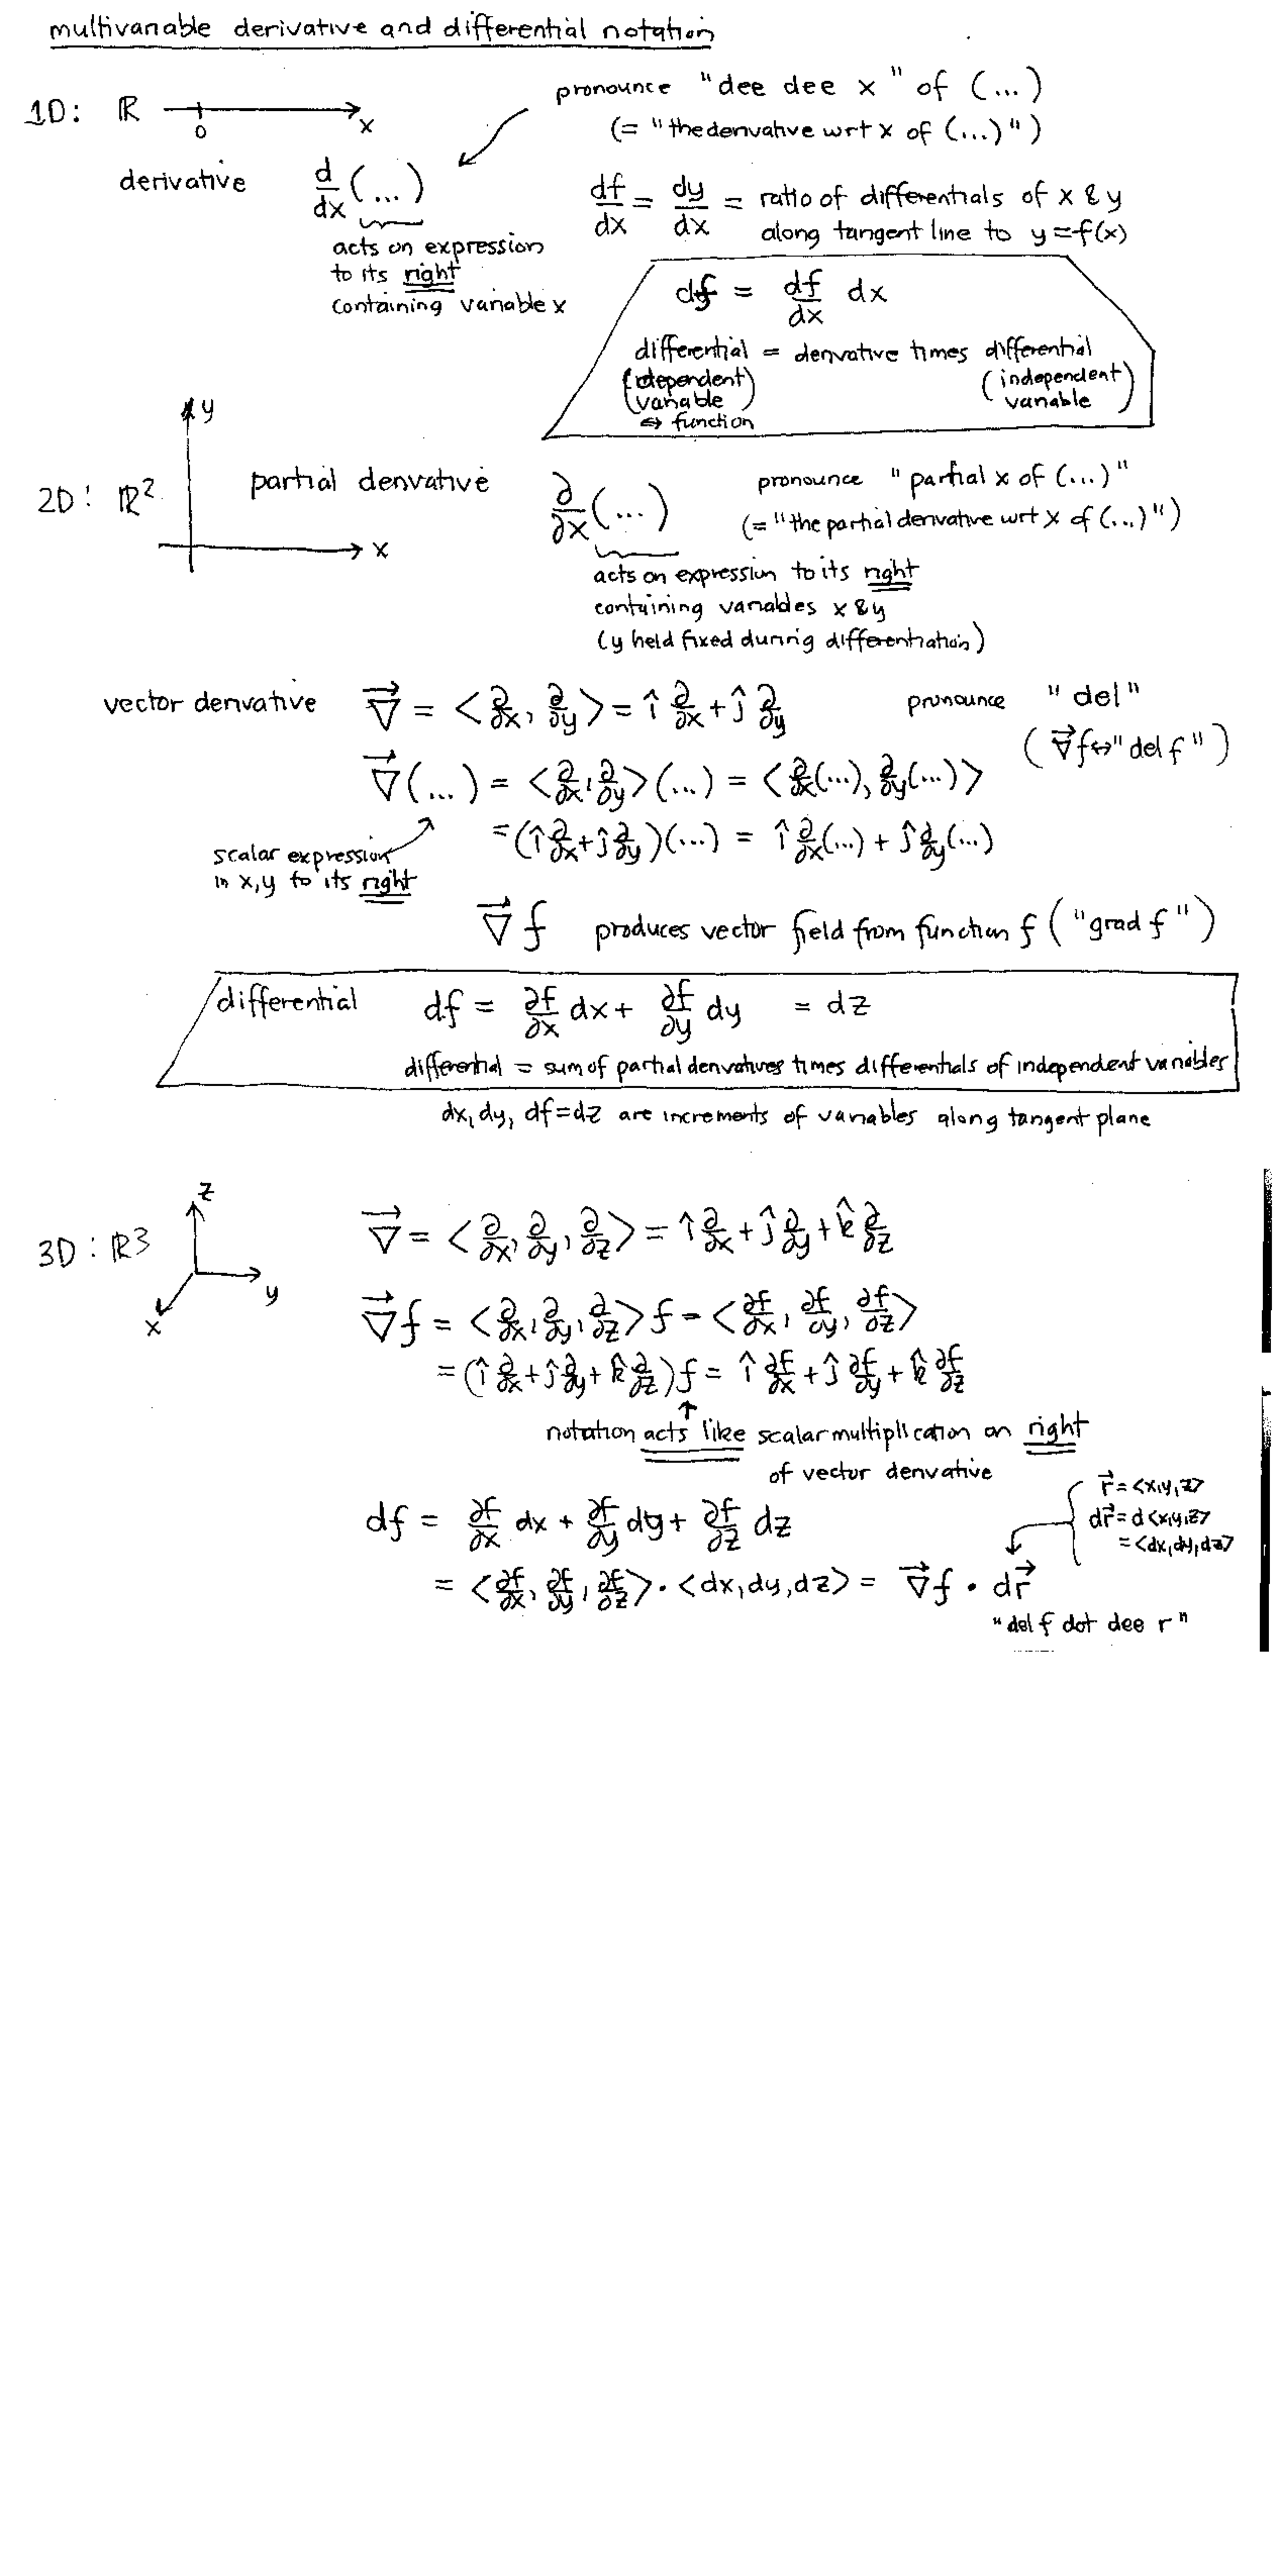 multivariable derivative and differential notation
1D: ℝ 0 x
pronounce "dee dee x" of (...)
(= "the derivative wrt x of (...)")
derivative d/dx (...)
acts on expression
to its right
containing variable x
df/dx = dy/dx = ratio of differentials of x & y
along tangent line to y = f(x)
df = df/dx dx
differential = derivative times differential
(dependent variable) (independent variable)
⇔ function
2D: ℝ² y x
partial derivative ∂/∂x (...)
pronounce "partial x of (...)"
(= "the partial derivative wrt x of (...)")
acts on expression to its right
containing variables x & y
(y held fixed during differentiation)
vector derivative ∇⃗ = <∂/∂x, ∂/∂y> = î ∂/∂x + ĵ ∂/∂y pronounce "del"
(∇⃗f ⇔ "del f")
∇⃗(...) = <∂/∂x, ∂/∂y>(...) = <∂/∂x(...), ∂/∂y(...)>
= (î ∂/∂x + ĵ ∂/∂y)(...) = î ∂/∂x(...) + ĵ ∂/∂y(...)
scalar expression
in x,y to its right
∇⃗f produces vector field from function f ("grad f")
differential df = ∂f/∂x dx + ∂f/∂y dy = dz
differential = sum of partial derivatives times differentials of independent variables
dx, dy, df=dz are increments of variables along tangent plane
3D: ℝ3 z y x
∇⃗ = <∂/∂x, ∂/∂y, ∂/∂z> = î ∂/∂x + ĵ ∂/∂y + k̂ ∂/∂z
∇⃗f = <∂/∂x, ∂/∂y, ∂/∂z> f = <∂f/∂x, ∂f/∂y, ∂f/∂z>
= (î ∂/∂x + ĵ ∂/∂y + k̂ ∂/∂z) f = î ∂f/∂x + ĵ ∂f/∂y + k̂ ∂f/∂z
notation acts like scalar multiplication on right
of vector derivative
df = ∂f/∂x dx + ∂f/∂y dy + ∂f/∂z dz
r⃗ = <x,y,z>
dr⃗ = d<x,y,z>
= <dx,dy,dz>
= <∂f/∂x, ∂f/∂y, ∂f/∂z> · <dx, dy, dz> = ∇⃗f · dr⃗
"del f dot dee r"